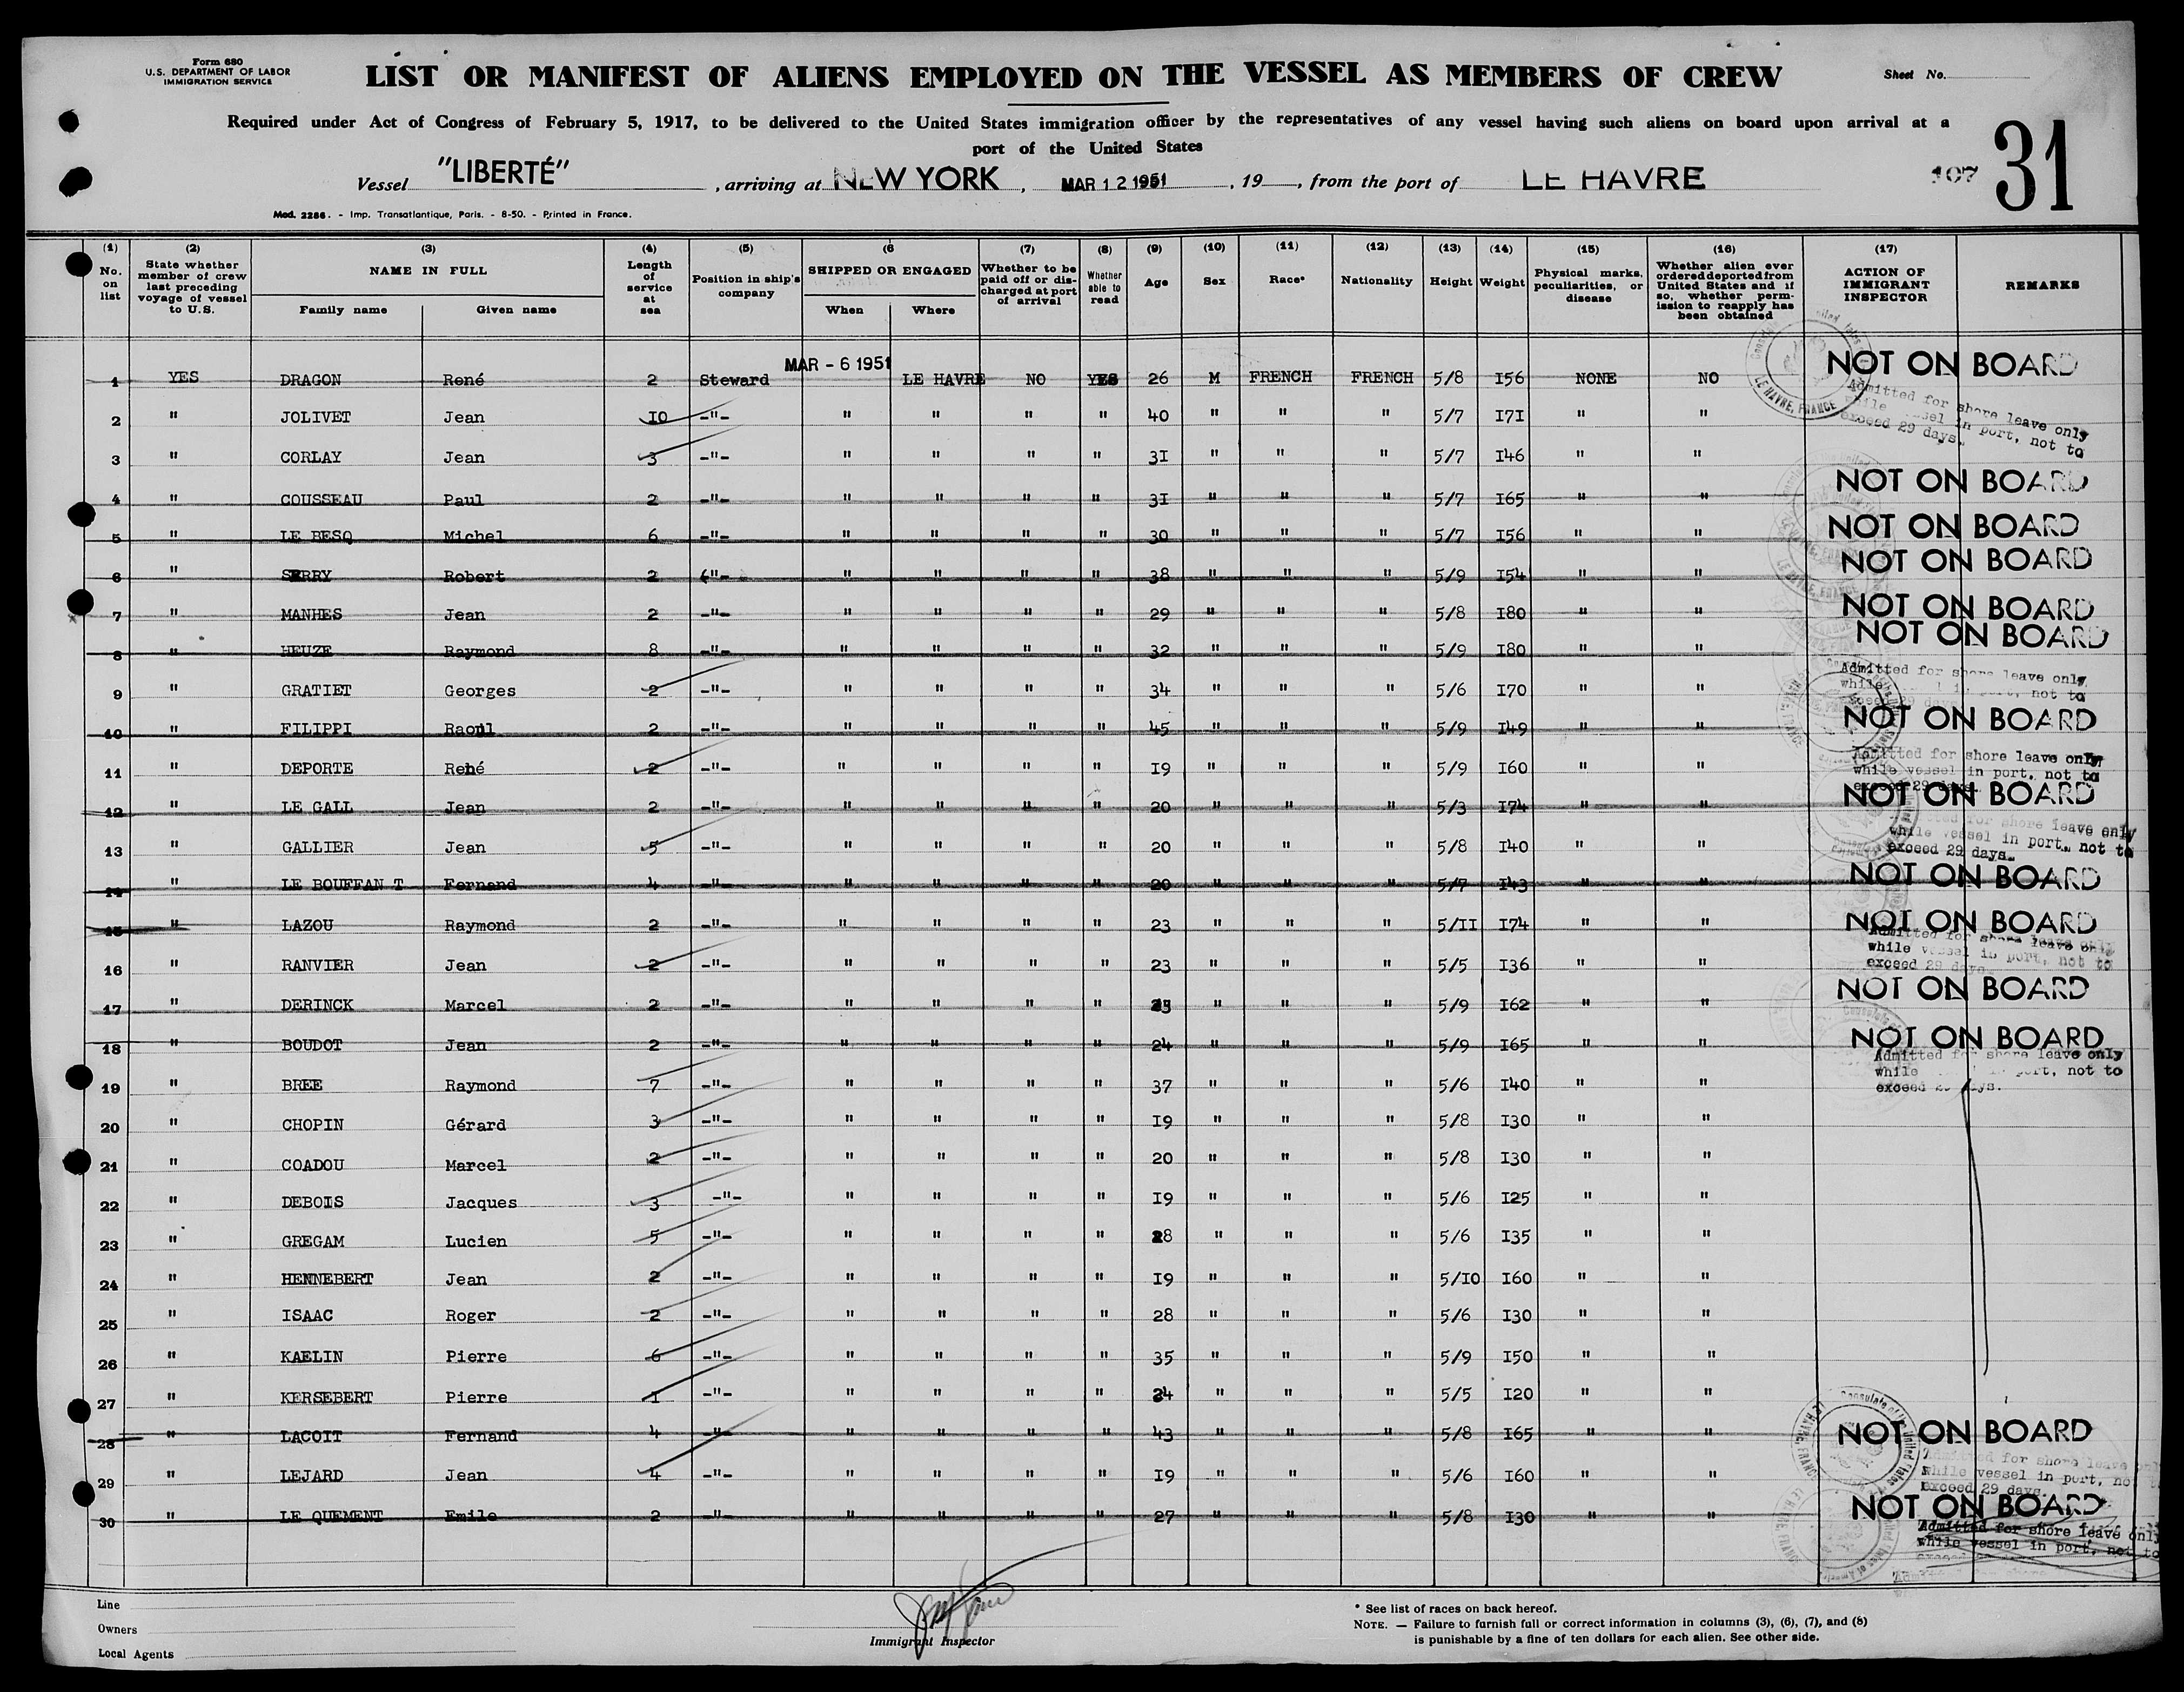 Form 680
U.S. DEPARTMENT OF LABOR
IMMIGRATION SERVICE
LIST OR MANIFEST OF ALIENS EMPLOYED ON THE VESSEL AS MEMBERS OF CREW
Sheet No.
Required under Act of Congress of February 5, 1917, to be delivered to the United States immigration officer by the representatives of any vessel having such aliens on board upon arrival at a
port of the United States
Vessel "LIBERTÉ", arriving at NEW YORK, MAR 12 1951, 19, from the port of LE HAVRE
107 31
Mod. 2286. - Imp. Transatlantique, Paris. - 8-50. - Printed in France.
(1) No. on list
(2) State whether member of crew last preceding voyage of vessel to U.S.
(3) NAME IN FULL Family name Given name
(4) Length of service at sea
(5) Position in ship's company
(6 SHIPPED OR ENGAGED When Where
(7) Whether to be paid off or discharged at port of arrival
(8) Whether able to read
(9) Age
(10) Sex
(11) Race*
(12) Nationality
(13) Height
(14) Weight
(15) Physical marks, peculiarities, or disease
(16) Whether alien ever ordered deported from United States and if so, whether permission to reapply has been obtained
(17) ACTION OF IMMIGRANT INSPECTOR
REMARKS
1 YES DRAGON René 2 Steward MAR - 6 1951 LE HAVRE NO YES 26 M FRENCH FRENCH 5/8 I56 NONE NO NOT ON BOARD
2 " JOLIVET Jean IO -"- " " " " 40 " " " 5/7 I7I " " Admitted for shore leave only while vessel in port, not to exceed 29 days.
3 " CORLAY Jean 3 -"- " " " " 3I " " " 5/7 I46 " "
4 " COUSSEAU Paul 2 -"- " " " " 3I " " " 5/7 I65 " " NOT ON BOARD
5 " LE BESQ Michel 6 -"- " " " " 30 " " " 5/7 I56 " " NOT ON BOARD
6 " SERRY Robert 2 ("- " " " " 38 " " " 5/9 I54 " " NOT ON BOARD
7 " MANHES Jean 2 -"- " " " " 29 " " " 5/8 I80 " " NOT ON BOARD
8 " HEUZE Raymond 8 -"- " " " " 32 " " " 5/9 I80 " " NOT ON BOARD
9 " GRATIET Georges 2 -"- " " " " 34 " " " 5/6 I70 " " Admitted for shore leave only while in port, not to
10 " FILIPPI Raoul 2 -"- " " " " 45 " " " 5/9 I49 " " NOT ON BOARD
11 " DEPORTE René 2 -"- " " " " I9 " " " 5/9 I60 " " Admitted for shore leave only while vessel in port, not to exceed 29 days.
12 " LE GALL Jean 2 -"- " " " " 20 " " " 5/3 I74 " " NOT ON BOARD
13 " GALLIER Jean 5 -"- " " " " 20 " " " 5/8 I40 " " for shore leave only while vessel in port, not to exceed 29 days.
14 " LE BOUFFAN T Fernand 4 -"- " " " " 20 " " " 5/7 I43 " " NOT ON BOARD
15 " LAZOU Raymond 2 -"- " " " " 23 " " " 5/II I74 " " NOT ON BOARD
16 " RANVIER Jean 2 -"- " " " " 23 " " " 5/5 I36 " " Admitted for shore leave only while vessel in port, not to exceed 29 days.
17 " DERINCK Marcel 2 -"- " " " " " " " 5/9 I62 " " NOT ON BOARD
18 " BOUDOT Jean 2 -"- " " " " 24 " " " 5/9 I65 " " NOT ON BOARD
19 " BREE Raymond 7 -"- " " " " 37 " " " 5/6 I40 " " Admitted for shore leave only while port, not to exceed days.
20 " CHOPIN Gérard 3 -"- " " " " I9 " " " 5/8 I30 " "
21 " COADOU Marcel 2 -"- " " " " 20 " " " 5/8 I30 " "
22 " DEBOIS Jacques 3 -"- " " " " I9 " " " 5/6 I25 " "
23 " GREGAM Lucien 5 -"- " " " " 28 " " " 5/6 I35 " "
24 " HENNEBERT Jean 2 -"- " " " " I9 " " " 5/IO I60 " "
25 " ISAAC Roger 2 -"- " " " " 28 " " " 5/6 I30 " "
26 " KAELIN Pierre 6 -"- " " " " 35 " " " 5/9 I50 " "
27 " KERSEBERT Pierre I -"- " " " " 24 " " " 5/5 I20 " "
28 " LACOIT Fernand 4 -"- " " " " 43 " " " 5/8 I65 " " NOT ON BOARD
29 " LEJARD Jean 4 -"- " " " " I9 " " " 5/6 I60 " " for shore leave while vessel in port, exceed 29 days.
30 " LE QUEMENT Emile 2 -"- " " " " 27 " " " 5/8 I30 " " NOT ON BOARD
Admitted for shore leave only
while vessel in port, not to
Line
Owners
Local Agents
Immigrant Inspector
* See list of races on back hereof.
NOTE. — Failure to furnish full or correct information in columns (3), (6), (7), and (8)
is punishable by a fine of ten dollars for each alien. See other side.